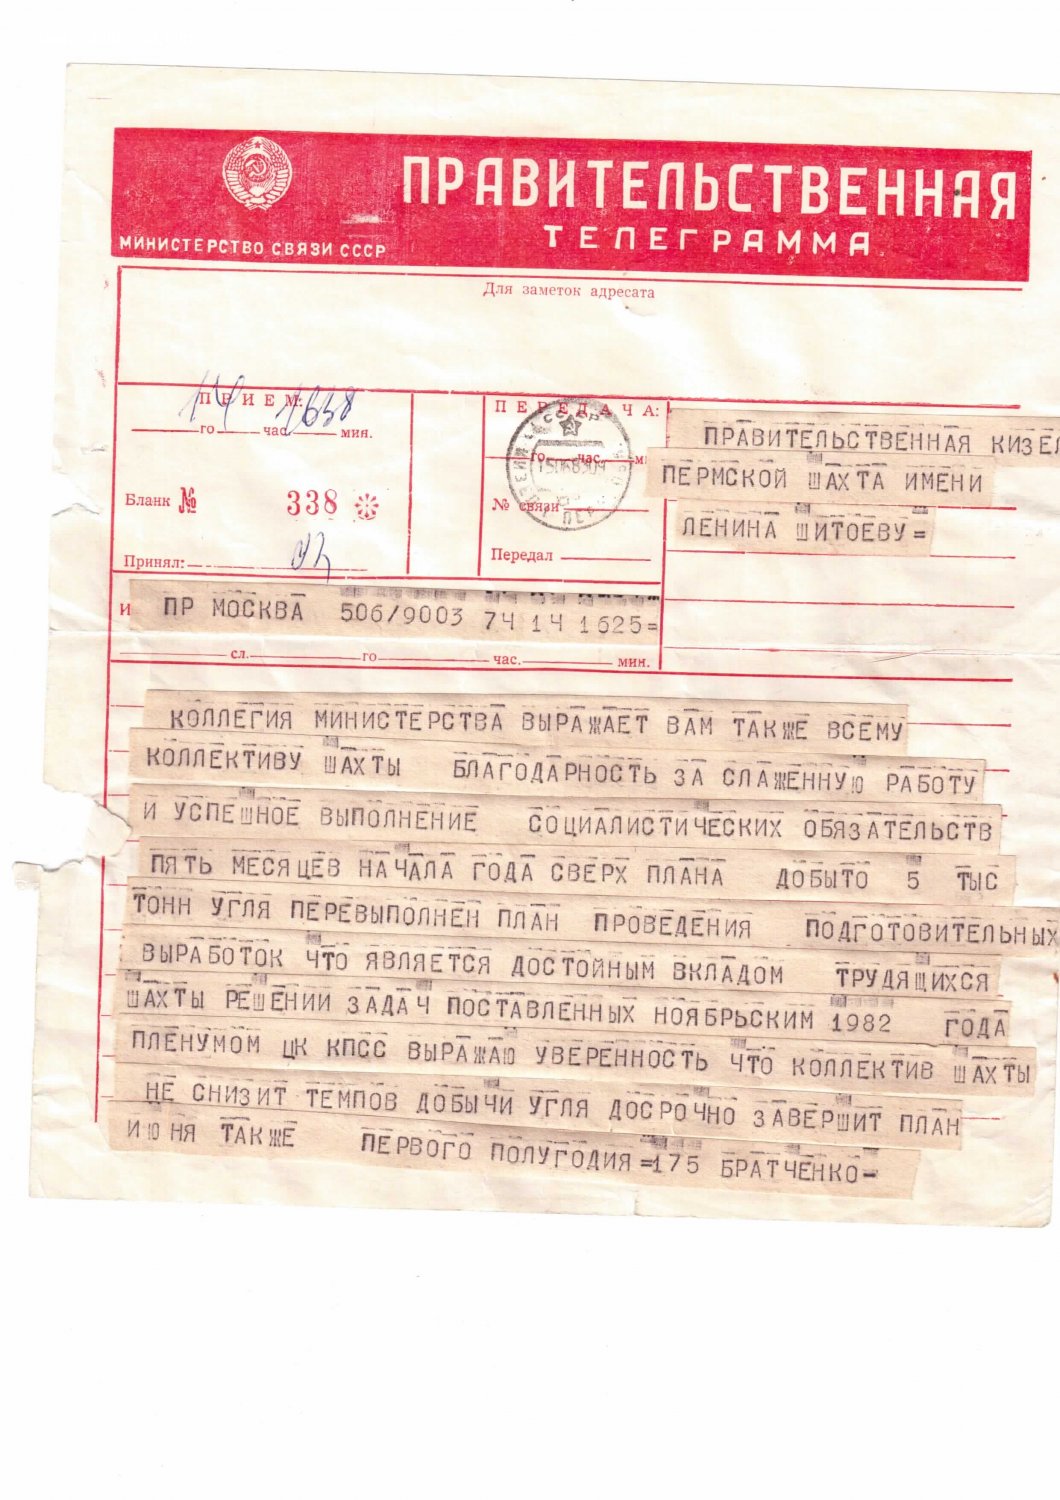 ПРАВИТЕЛЬСТВЕННАЯ
ТЕЛЕГРАММА
МИНИСТЕРСТВО СВЯЗИ СССР
Для заметок адресата
ПРИЕМ:
14 1638
го час. мин.
Бланк № 338
Принял:
ПЕРЕДАЧА:
го час.
№ связи
Передал
ПРАВИТЕЛЬСТВЕННАЯ КИЗЕЛ
ПЕРМСКОЙ ШАХТА ИМЕНИ
ЛЕНИНА ШИТОЕВУ=
И ПР МОСКВА 506/9003 74 14 1625=
сл. го час. мин.
КОЛЛЕГИЯ МИНИСТЕРСТВА ВЫРАЖАЕТ ВАМ ТАКЖЕ ВСЕМУ
КОЛЛЕКТИВУ ШАХТЫ БЛАГОДАРНОСТЬ ЗА СЛАЖЕННУЮ РАБОТУ
И УСПЕШНОЕ ВЫПОЛНЕНИЕ СОЦИАЛИСТИЧЕСКИХ ОБЯЗАТЕЛЬСТВ
ПЯТЬ МЕСЯЦЕВ НАЧАЛА ГОДА СВЕРХ ПЛАНА ДОБЫТО 5 ТЫС
ТОНН УГЛЯ ПЕРЕВЫПОЛНЕН ПЛАН ПРОВЕДЕНИЯ ПОДГОТОВИТЕЛЬНЫХ
ВЫРАБОТОК ЧТО ЯВЛЯЕТСЯ ДОСТОЙНЫМ ВКЛАДОМ ТРУДЯЩИХСЯ
ШАХТЫ РЕШЕНИИ ЗАДАЧ ПОСТАВЛЕННЫХ НОЯБРЬСКИМ 1982 ГОДА
ПЛЕНУМОМ ЦК КПСС ВЫРАЖАЮ УВЕРЕННОСТЬ ЧТО КОЛЛЕКТИВ ШАХТЫ
НЕ СНИЗИТ ТЕМПОВ ДОБЫЧИ УГЛЯ ДОСРОЧНО ЗАВЕРШИТ ПЛАН
ИЮНЯ ТАКЖЕ ПЕРВОГО ПОЛУГОДИЯ=175 БРАТЧЕНКО-